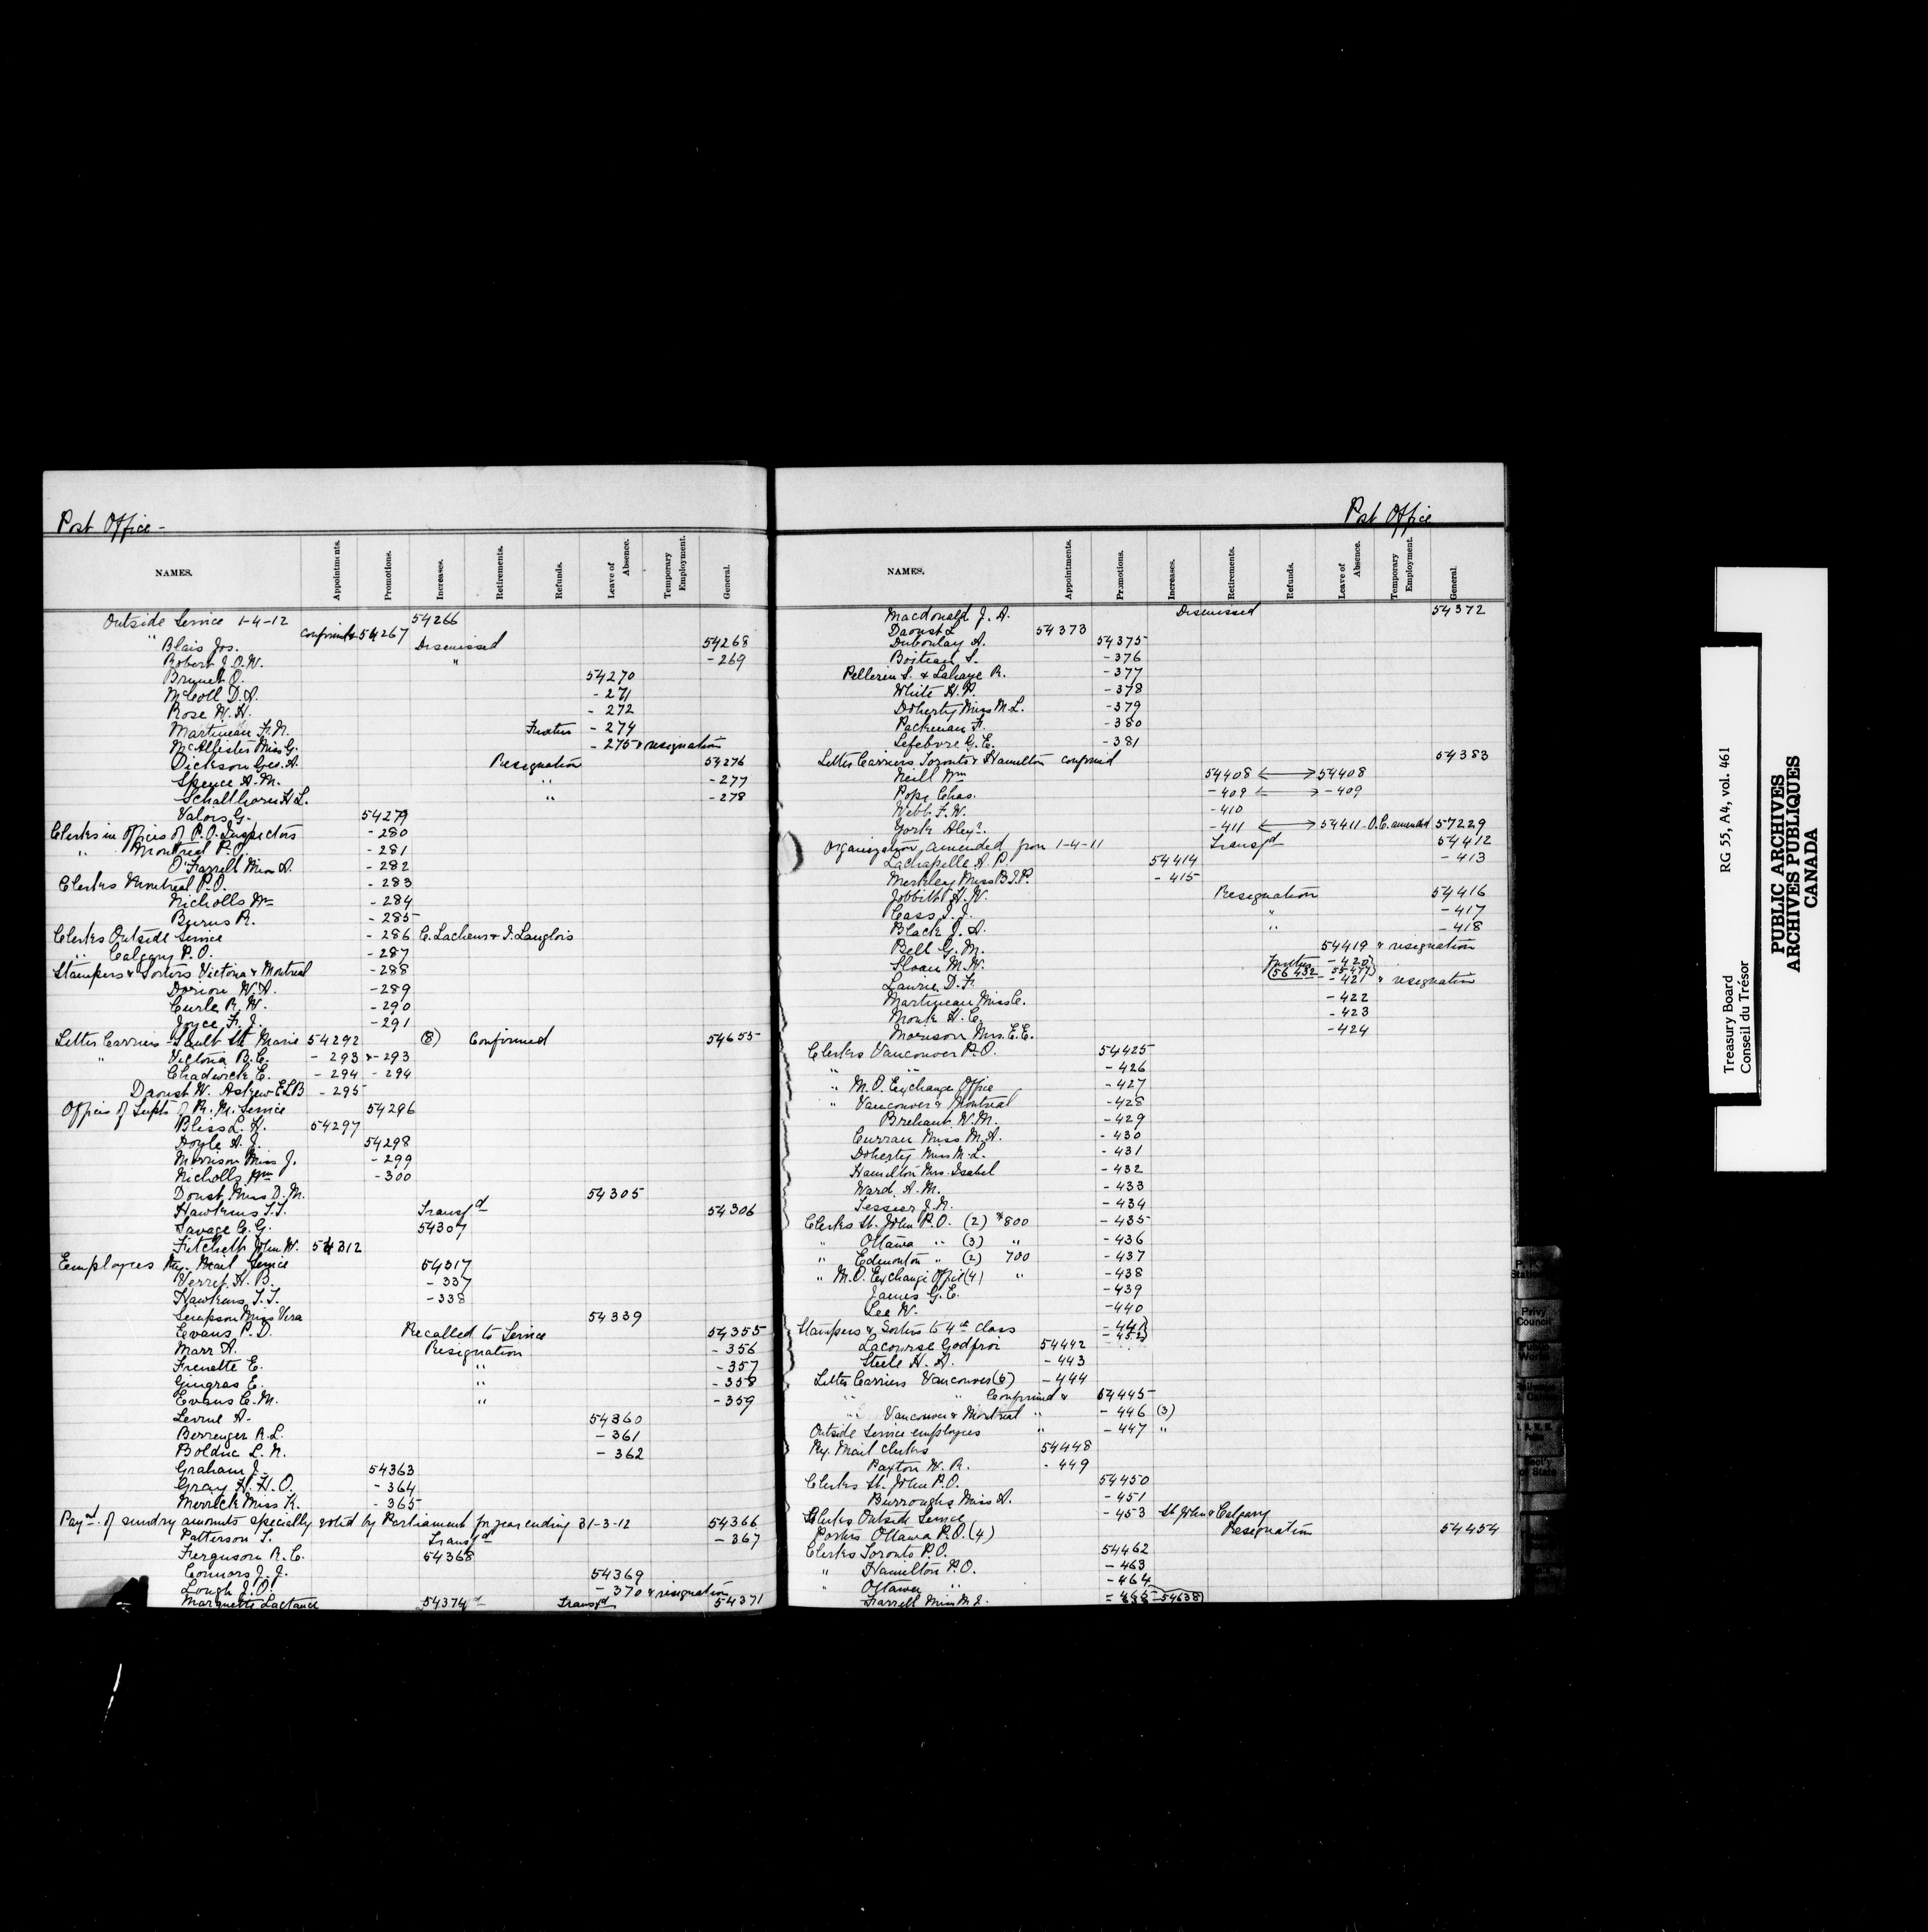 Post Office -
NAMES. Appointments. Promotions. Increases. Retirements. Refunds. Leave of Absence. Temporary Employment. General.
Outside Service 1-4-12 54266
" confirmed & 54267
Blais Jos. Dismissed 54268
Robert J.O.W. " - 269
Brunet O. 54270
McColl D.A. - 271
Rose W.H. - 272
Martineau F.N. Further - 274
McAllister Miss G. - 275 & resignation
Dickson Geo. A. Resignation 54276
Spence A.M. " - 277
Schallhorn H.L. " - 278
Valois G. 54279
Clerks in Offices of P.O. Inspectors - 280
" Montreal P.O. - 281
O'Farrell Miss A. - 282
Clerks Montreal P.O. - 283
Nicholls Wm - 284
Burns R. - 285
Clerks Outside Service - 286 C. Lachens & J. Langlois
" Calgary P.O. - 287
Stampers & Sorters Victoria & Montreal - 288
Dorion W.A. - 289
Curle R.W. - 290
Joyce F.J. - 291
Letter Carriers - Sault St Marie 54292 (8) Confirmed 54655
" Victoria B.C. - 293 & - 293
Chadwick E. - 294 - 294
Daoust W. Askew E.L.B - 295
Offices of Supts of R.M. Service 54296
Bliss L.H. 54297
Doyle A.J. 54298
Morrison Miss J. - 299
Nicholls Wm - 300
Doust Miss D.M. 54305
Hawkins T.T. Transfd 54306
Savage C.G. 54307
Fitchett John W. 54312
Employees Ry. Mail Service 54317
Verret H.B. - 337
Hawkins T.T. - 338
Simpson Miss Vera 54339
Evans P.D. Recalled to Service 54355
Marr A. Resignation - 356
Frenette E. " - 357
Gingras E. " - 358
Evans C.M. " - 359
Levine A. 54360
Berringer R.L. - 361
Bolduc L.N. - 362
Graham J. 54363
Gray H.H.O. - 364
Merrick Miss K. - 365
Paynt. of sundry amounts specially voted by Parliament for year ending 31-3-12 54366
Patterson T. Transfd - 367
Ferguson R.C. 54368
Connors J.J. 54369
Lough J.O. - 370 & resignation
Marquette Lactance 54374 Transfd 54371
Post Office
NAMES. Appointments. Promotions. Increases. Retirements. Refunds. Leave of Absence. Temporary Employment. General.
Macdonald J.A. Dismissed 54372
Daoust L 54373
Duboulay A. 54375
Boiteau S. - 376
Pellerin S. & Lahaye R. - 377
White H.P. - 378
Doherty Miss M.L. - 379
Packman F. - 380
Lefebvre G.E. - 381
Letter Carriers Toronto & Hamilton confirmed 54383
Neill Wm 54408 ⟷ 54408
Pope Chas. - 409 ⟷ - 409
Webb F.W. - 410
York Alexr. - 411 ⟷ 54411 - O.C. amended 57229
Organization, amended from 1-4-11 Transfd 54412
Lachapelle A.P. 54414 - 413
Merkley Miss B.I.P. - 415
Jobbitt H.W. Resignation 54416
Cass J.J. " - 417
Black J.A. " - 418
Bell G.M. 54419 & resignation
Sloan M.W. Further - 420
(56432 - 55477)
Laurie D.F. - 421 & resignation
Martineau Miss C. - 422
Monk H.C. - 423
Morison Mrs. E.E. - 424
Clerks Vancouver P.O. 54425
" " - 426
" M.O. Exchange Office - 427
" Vancouver & Montreal - 428
Brehaut W.M. - 429
Curran Miss M.A. - 430
Doherty Miss M.L. - 431
Hamilton Mrs. Isabel - 432
Ward A.M. - 433
Tessier J.N. - 434
Clerks St. John P.O. (2) $800 - 435
" Ottawa " (3) " - 436
" Edmonton " (2) 700 - 437
" M.O. Exchange Office (4) " - 438
James G.E. - 439
Lee W. - 440
Stampers & Sorters to 4th Class - 441
- 452
Lacourse Godfroi 54442
Steele H.A. - 443
Letter Carriers Vancouver (6) - 444
" " Confirmed & 54445
" Vancouver & Montreal " - 446 (3)
Outside Service employees " - 447 "
Ry. Mail clerks 54448
Paxton W.R. - 449
Clerks St. John P.O. 54450
Burroughs Miss A. - 451
Clerks Outside Service - 453 St John & Calgary
Porters Ottawa P.O. (4) Resignation 54454
Clerks Toronto P.O. 54462
" Hamilton P.O. - 463
" Ottawa " - 464
Farrell Miss M.J. - 465 - 54638
Treasury Board RG 55, A4, vol. 461
Conseil du Trésor
PUBLIC ARCHIVES
ARCHIVES PUBLIQUES
CANADA
Privy
Council